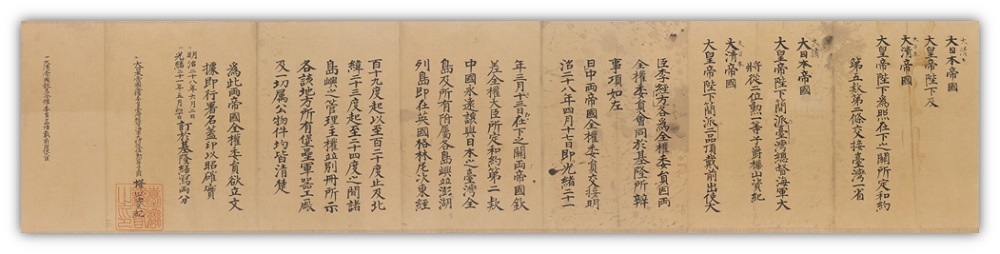 大日本帝國
大皇帝陛下及
大清帝國
大皇帝陛下為照在下之關所定和約
第五款第二條交接臺灣一省
大日本帝國
大皇帝陛下簡派臺灣總督海軍大
將從二位勳一等子爵樺山資紀
大清帝國
大皇帝陛下簡派二品頂戴前出使大
臣李經方各為全權委員因兩
全權委員會同於基隆所辦
事項如左
日中兩帝國全權委員交接明
治二十八年四月十七日即光緒二十一
年三月二十三日在下之關兩帝國欽
差全權大臣所定和約第二款
中國永遠讓與日本之臺灣全
島及所有附屬各島嶼並澎湖
列島即在英國格林尼次東經
百十九度起以至百二十度止及北
緯二十三度起至二十四度之間諸
島嶼之管理主權並別冊所示
各該地方所有堡壘軍器工廠
及一切屬公物件均皆清楚
為此兩帝國全權委員欲立文
據即行署名蓋印以昭確實
明治二十八年六月二日
光緒二十一年五月初十日
訂於基隆繕寫兩分
樺山資紀